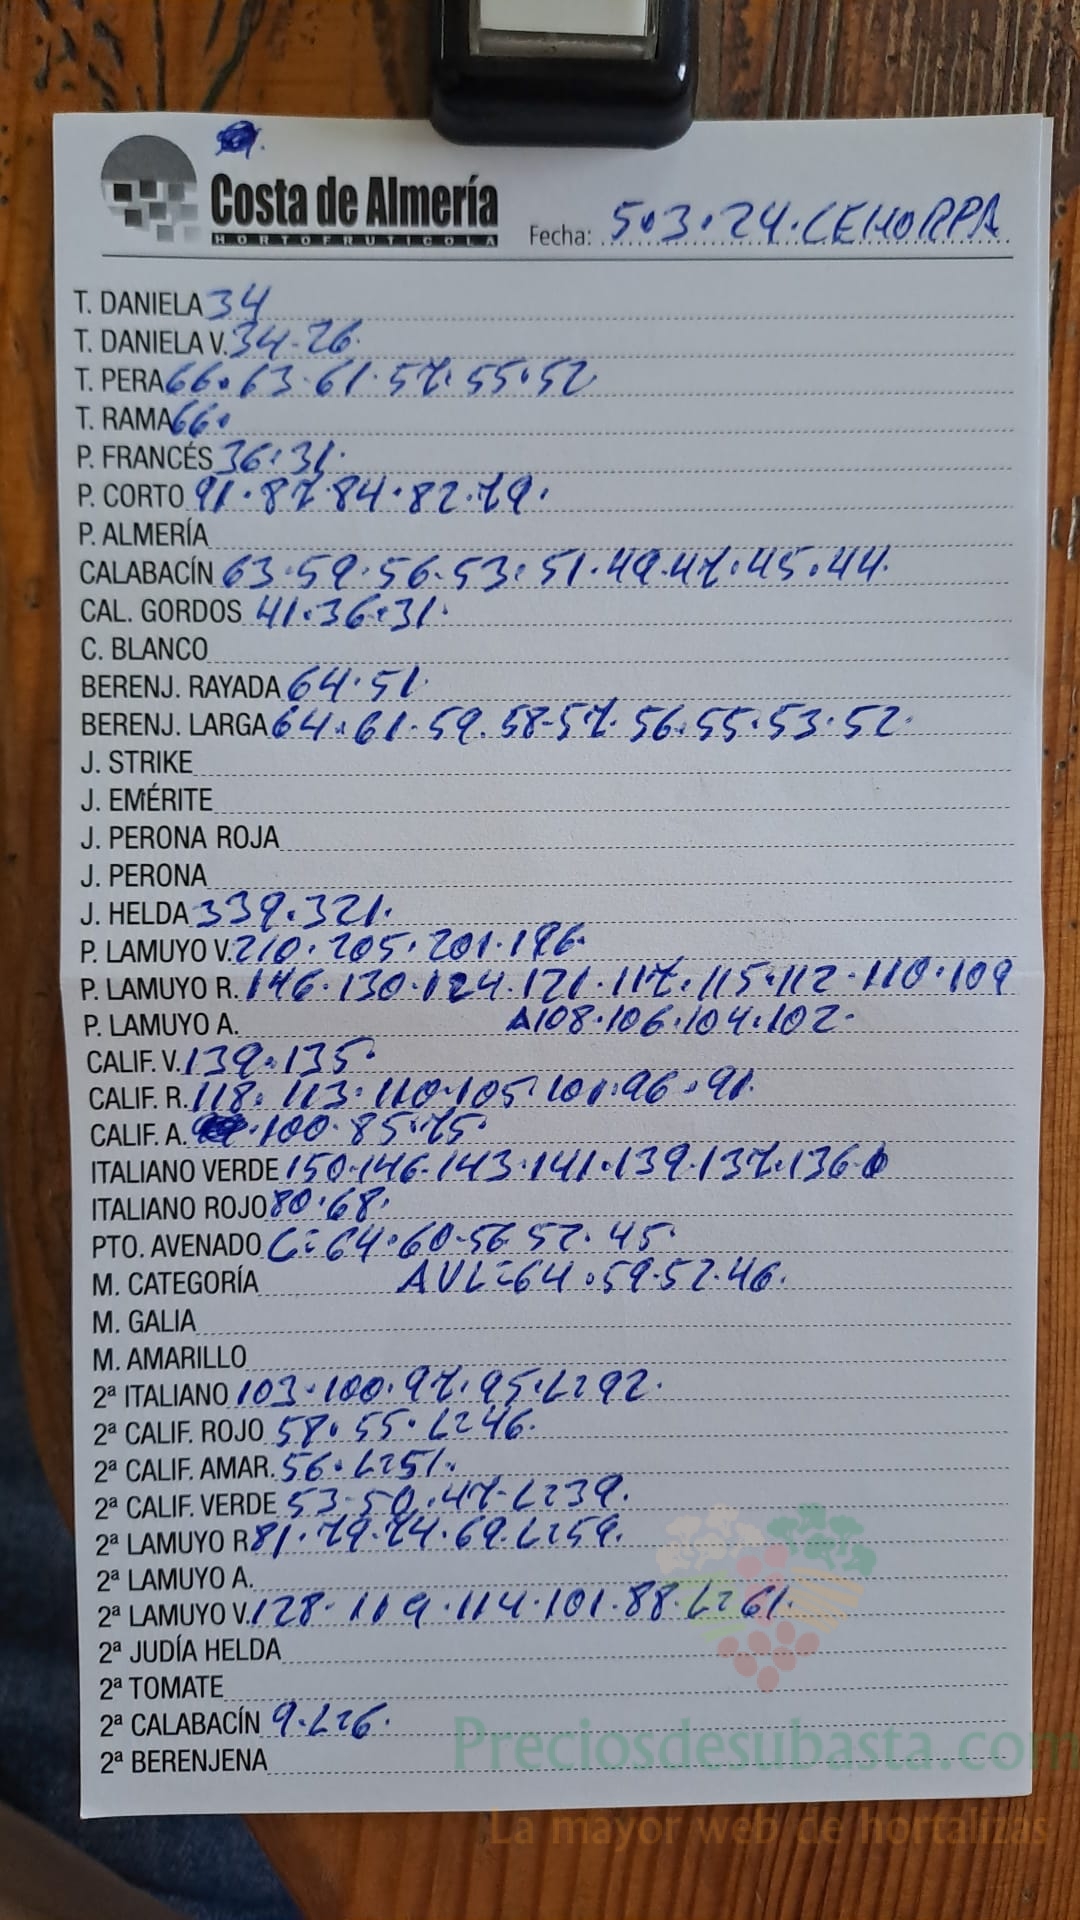 Costa de Almería
HORTOFRUTICOLA
Fecha: 5.3.24.CEHORPA
T. DANIELA 34
T. DANIELA V. 34-26.
T. PERA 66.63.61.57.55.52
T. RAMA 66.
P. FRANCÉS 36.31.
P. CORTO 91.87.84.82.79.
P. ALMERÍA
CALABACÍN 63.59.56.53.51.49.47.45.44.
CAL. GORDOS 41.36.31.
C. BLANCO
BERENJ. RAYADA 64.51.
BERENJ. LARGA 64.61.59.58-57.56.55.53.52.
J. STRIKE
J. EMÉRITE
J. PERONA ROJA
J. PERONA
J. HELDA 339.321.
P. LAMUYO V. 210.205.201.196.
P. LAMUYO R. 146.130.124.121.117.115.112.110.109
P. LAMUYO A. A108.106.104.102.
CALIF. V. 139.135.
CALIF. R. 118.113.110.105.101.96.91.
CALIF. A. .100.85.75.
ITALIANO VERDE 150.146.143.141.139.137.136
ITALIANO ROJO 80.68.
PTO. AVENADO C=64.60-56 52.45.
M. CATEGORÍA AVL=64.59.52.46.
M. GALIA
M. AMARILLO
2ª ITALIANO 103.100.97.95.L=92.
2ª CALIF. ROJO 58.55.L=46.
2ª CALIF. AMAR. 56.L=51.
2ª CALIF. VERDE 53-50.47-L=39.
2ª LAMUYO R 81.79.74.69.L=59.
2ª LAMUYO A.
2ª LAMUYO V. 128.119.114.101.88.L=61.
2ª JUDÍA HELDA
2ª TOMATE
2ª CALABACÍN 9.L=6.
2ª BERENJENA
Preciosdesubasta.com
La mayor web de hortalizas